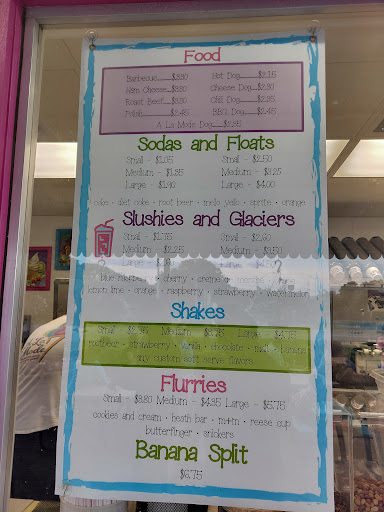 Food
Barbecue......$3.30 Hot Dog......$2.15
Ham Cheese......$3.30 Cheese Dog......$2.30
Roast Beef......$3.30 Chili Dog......$2.35
Polish......$2.45 BBQ Dog......$2.45
A La Mode Dog......$2.85
Sodas and Floats
Small - Small - $2.50
Medium - $1.35 Medium - $3.25
Large - $1.90 Large - $4.00
coke • diet coke • root beer • mello yello • sprite • orange
Slushies and Glaciers
Small - $1.75 Small -
Medium - $2.25 Medium - $3.50
Large -
blue raspberry • cherry •
lemon lime • orange • raspberry • strawberry • watermelon
Shakes
Small Medium Large - $4.75
rootbeer • strawberry • vanilla • chocolate • malt • banana
any custom soft serve flavors
Flurries
Small - $3.80 Medium - $4.85 Large - $5.75
cookies and cream • heath bar • m+m • reese cup
butterfinger • snickers
Banana Split
$6.75